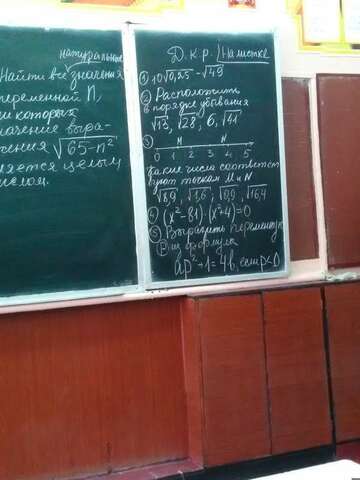 натуральные
Найти все значения
переменной n,
ри которых
начение выра-
жения √65-n²
ляется целым
ислом.
Д.к.р. На листке
① 10√0,25 - √49
② Расположить
в порядке убывания
√13, √28, 6, √41
③ M N
0 1 2 3 4 5
Какие числа соответст
вуют точкам M и N
√8,9, √1,6, √0,9, √16,4
④ (x²-81)·(x²+4)=0
⑤ Выразить переменную
p из формулы
ap²+1=4b, если p<0